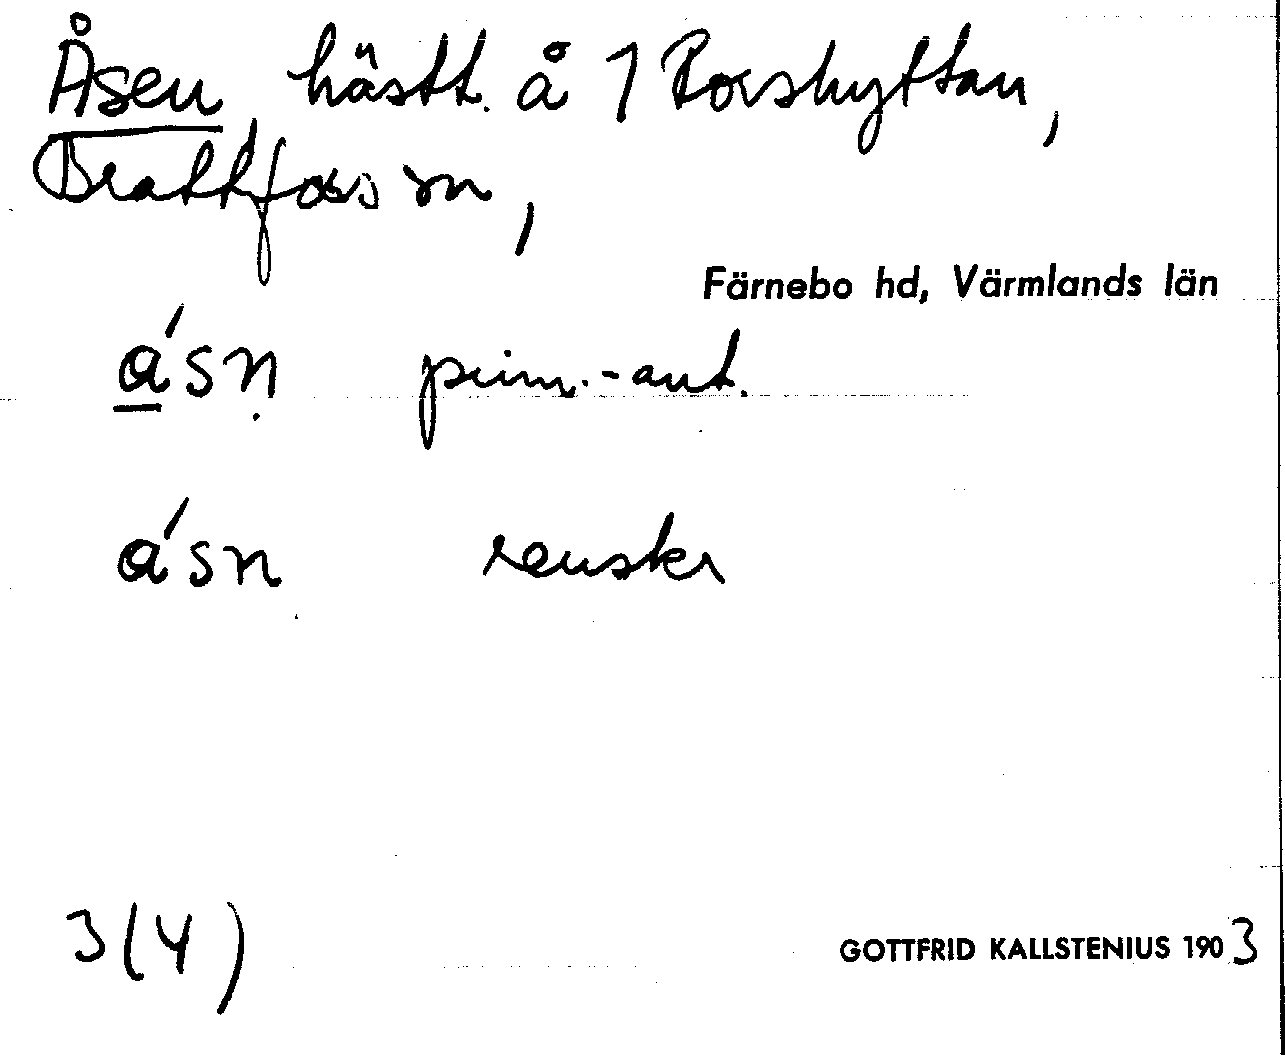 Åsen hästt. å 1 Torshyttan,
Brattfors sn,
Färnebo hd, Värmlands län
á̲sṇ prim.-ant.
ásn renskr
3(4)
GOTTFRID KALLSTENIUS 1903